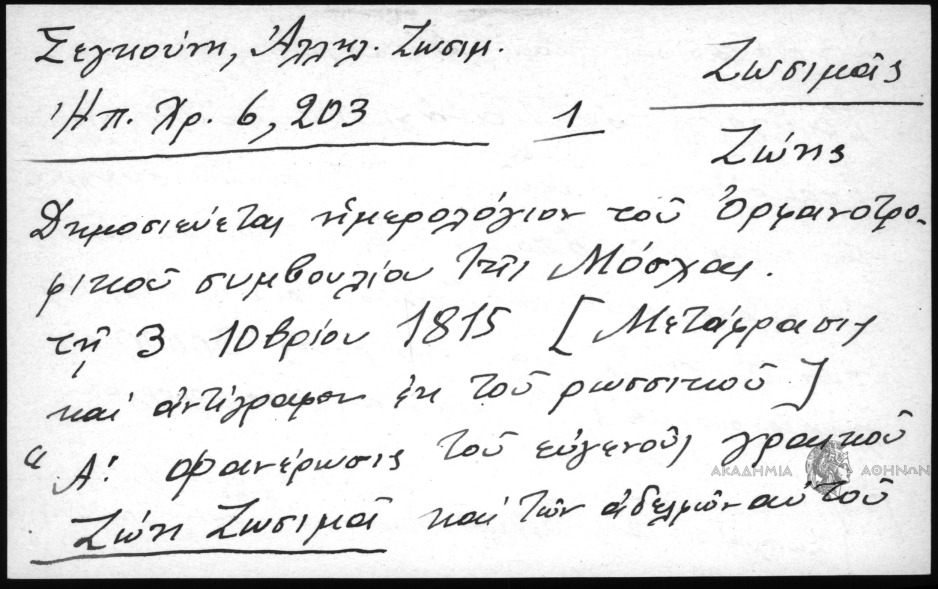 Σεγκούνη, Ἀλληλ. Ζωσιμ.
Ἠπ. Χρ. 6, 203
1
Ζωσιμᾶς
Ζώης
Δημοσιεύεται ἡμερολόγιον τοῦ Ὀρφανοτρο-
φικοῦ συμβουλίου τῆς Μόσχας.
τῇ 3 10βρίου 1815 [Μετάφρασις
καὶ ἀντίγραφον ἐκ τοῦ ρωσσικοῦ]
“Α! φανέρωσις τοῦ εὐγενοῦς γραικοῦ
Ζώη Ζωσιμᾶ καὶ τῶν ἀδελφῶν αὐτοῦ
ΑΚΑΔΗΜΙΑ ΑΘΗΝΩΝ